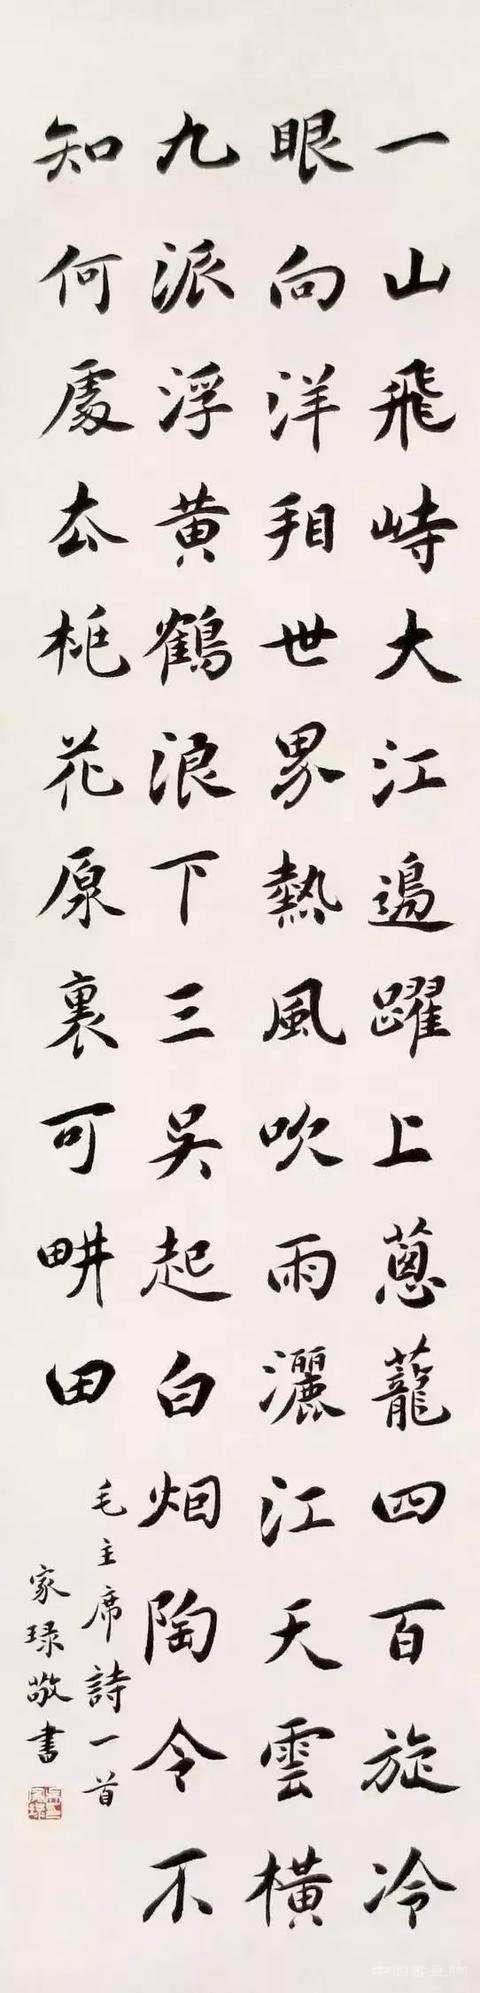 一山飛峙大江邊躍上蔥蘢四百旋冷
眼向洋看世界熱風吹雨灑江天雲橫
九派浮黄鶴浪下三吳起白烟陶令不
知何處去桃花源裏可畊田
毛主席詩一首
家琭敬書
中国書画網